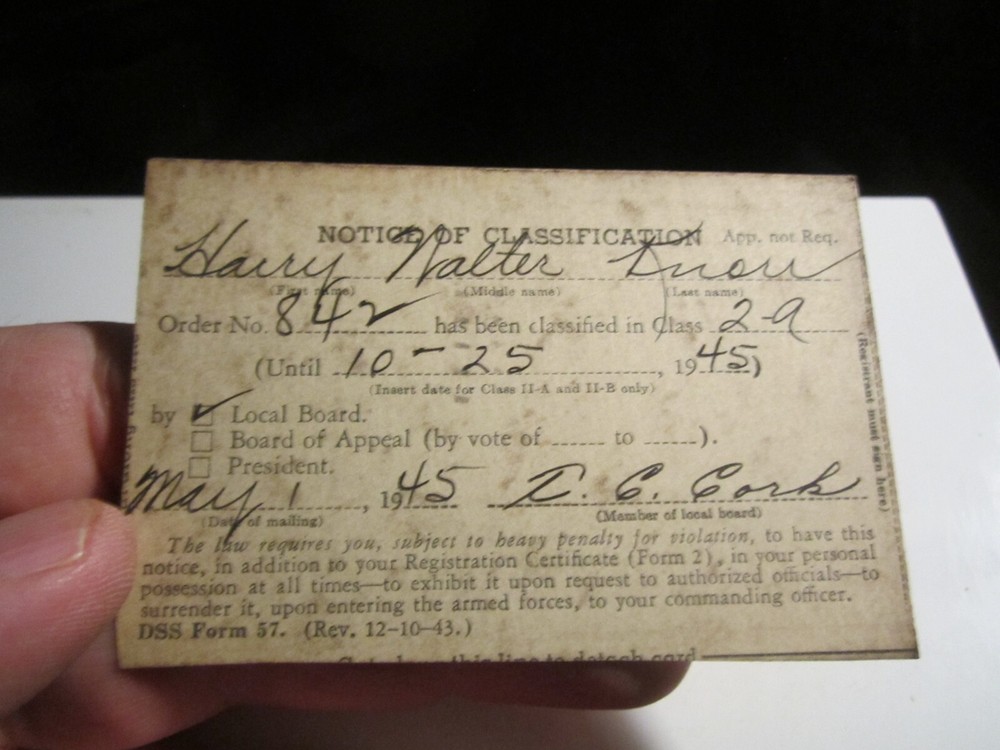 NOTICE OF CLASSIFICATION App. not Req.
Harry Walter Knorr
(First name) (Middle name) (Last name)
Order No. 842 has been classified in Class 2-A
(Until 10-25, 1945)
(Insert date for Class II-A and II-B only)
by ☑ Local Board.
☐ Board of Appeal (by vote of ...... to ......).
☐ President.
May 1, 1945 C. Cork
(Date of mailing) (Member of local board)
The law requires you, subject to heavy penalty for violation, to have this
notice, in addition to your Registration Certificate (Form 2), in your personal
possession at all times—to exhibit it upon request to authorized officials—to
surrender it, upon entering the armed forces, to your commanding officer.
DSS Form 57. (Rev. 12-10-43.)
this line to detach card
(Registrant must sign here)